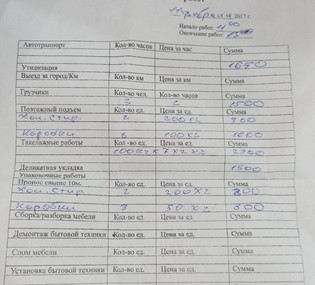 2017 г.
Начало работ:
Окончание работ:
Автотранспорт Кол-во часов Цена за час Сумма
Утилизация 1650
Выезд за город/Км Кол-во км Цена за км Сумма
Грузчики Кол-во чел. Кол-во часов Сумма
2 2 1500
Поэтажный подъем Кол-во ед. Цена за ед. Сумма
2 200х2
Коробки 8 100х2 1600
Такелажные работы Кол-во ед. Цена за ед. Сумма
Деликатная укладка 1500
Упаковочные работы
Пронос свыше 10м. Кол-во ед. Цена за ед. Сумма
2 200х2 800
Коробки 8 50 х2 800
Сборка/разборка мебели Кол-во ед. Цена за ед. Сумма
Демонтаж бытовой техники Кол-во ед. Цена за ед. Сумма
Слом мебели Кол-во ед. Цена за ед. Сумма
Установка бытовой техники Кол-во ед. Цена за ед. Сумма